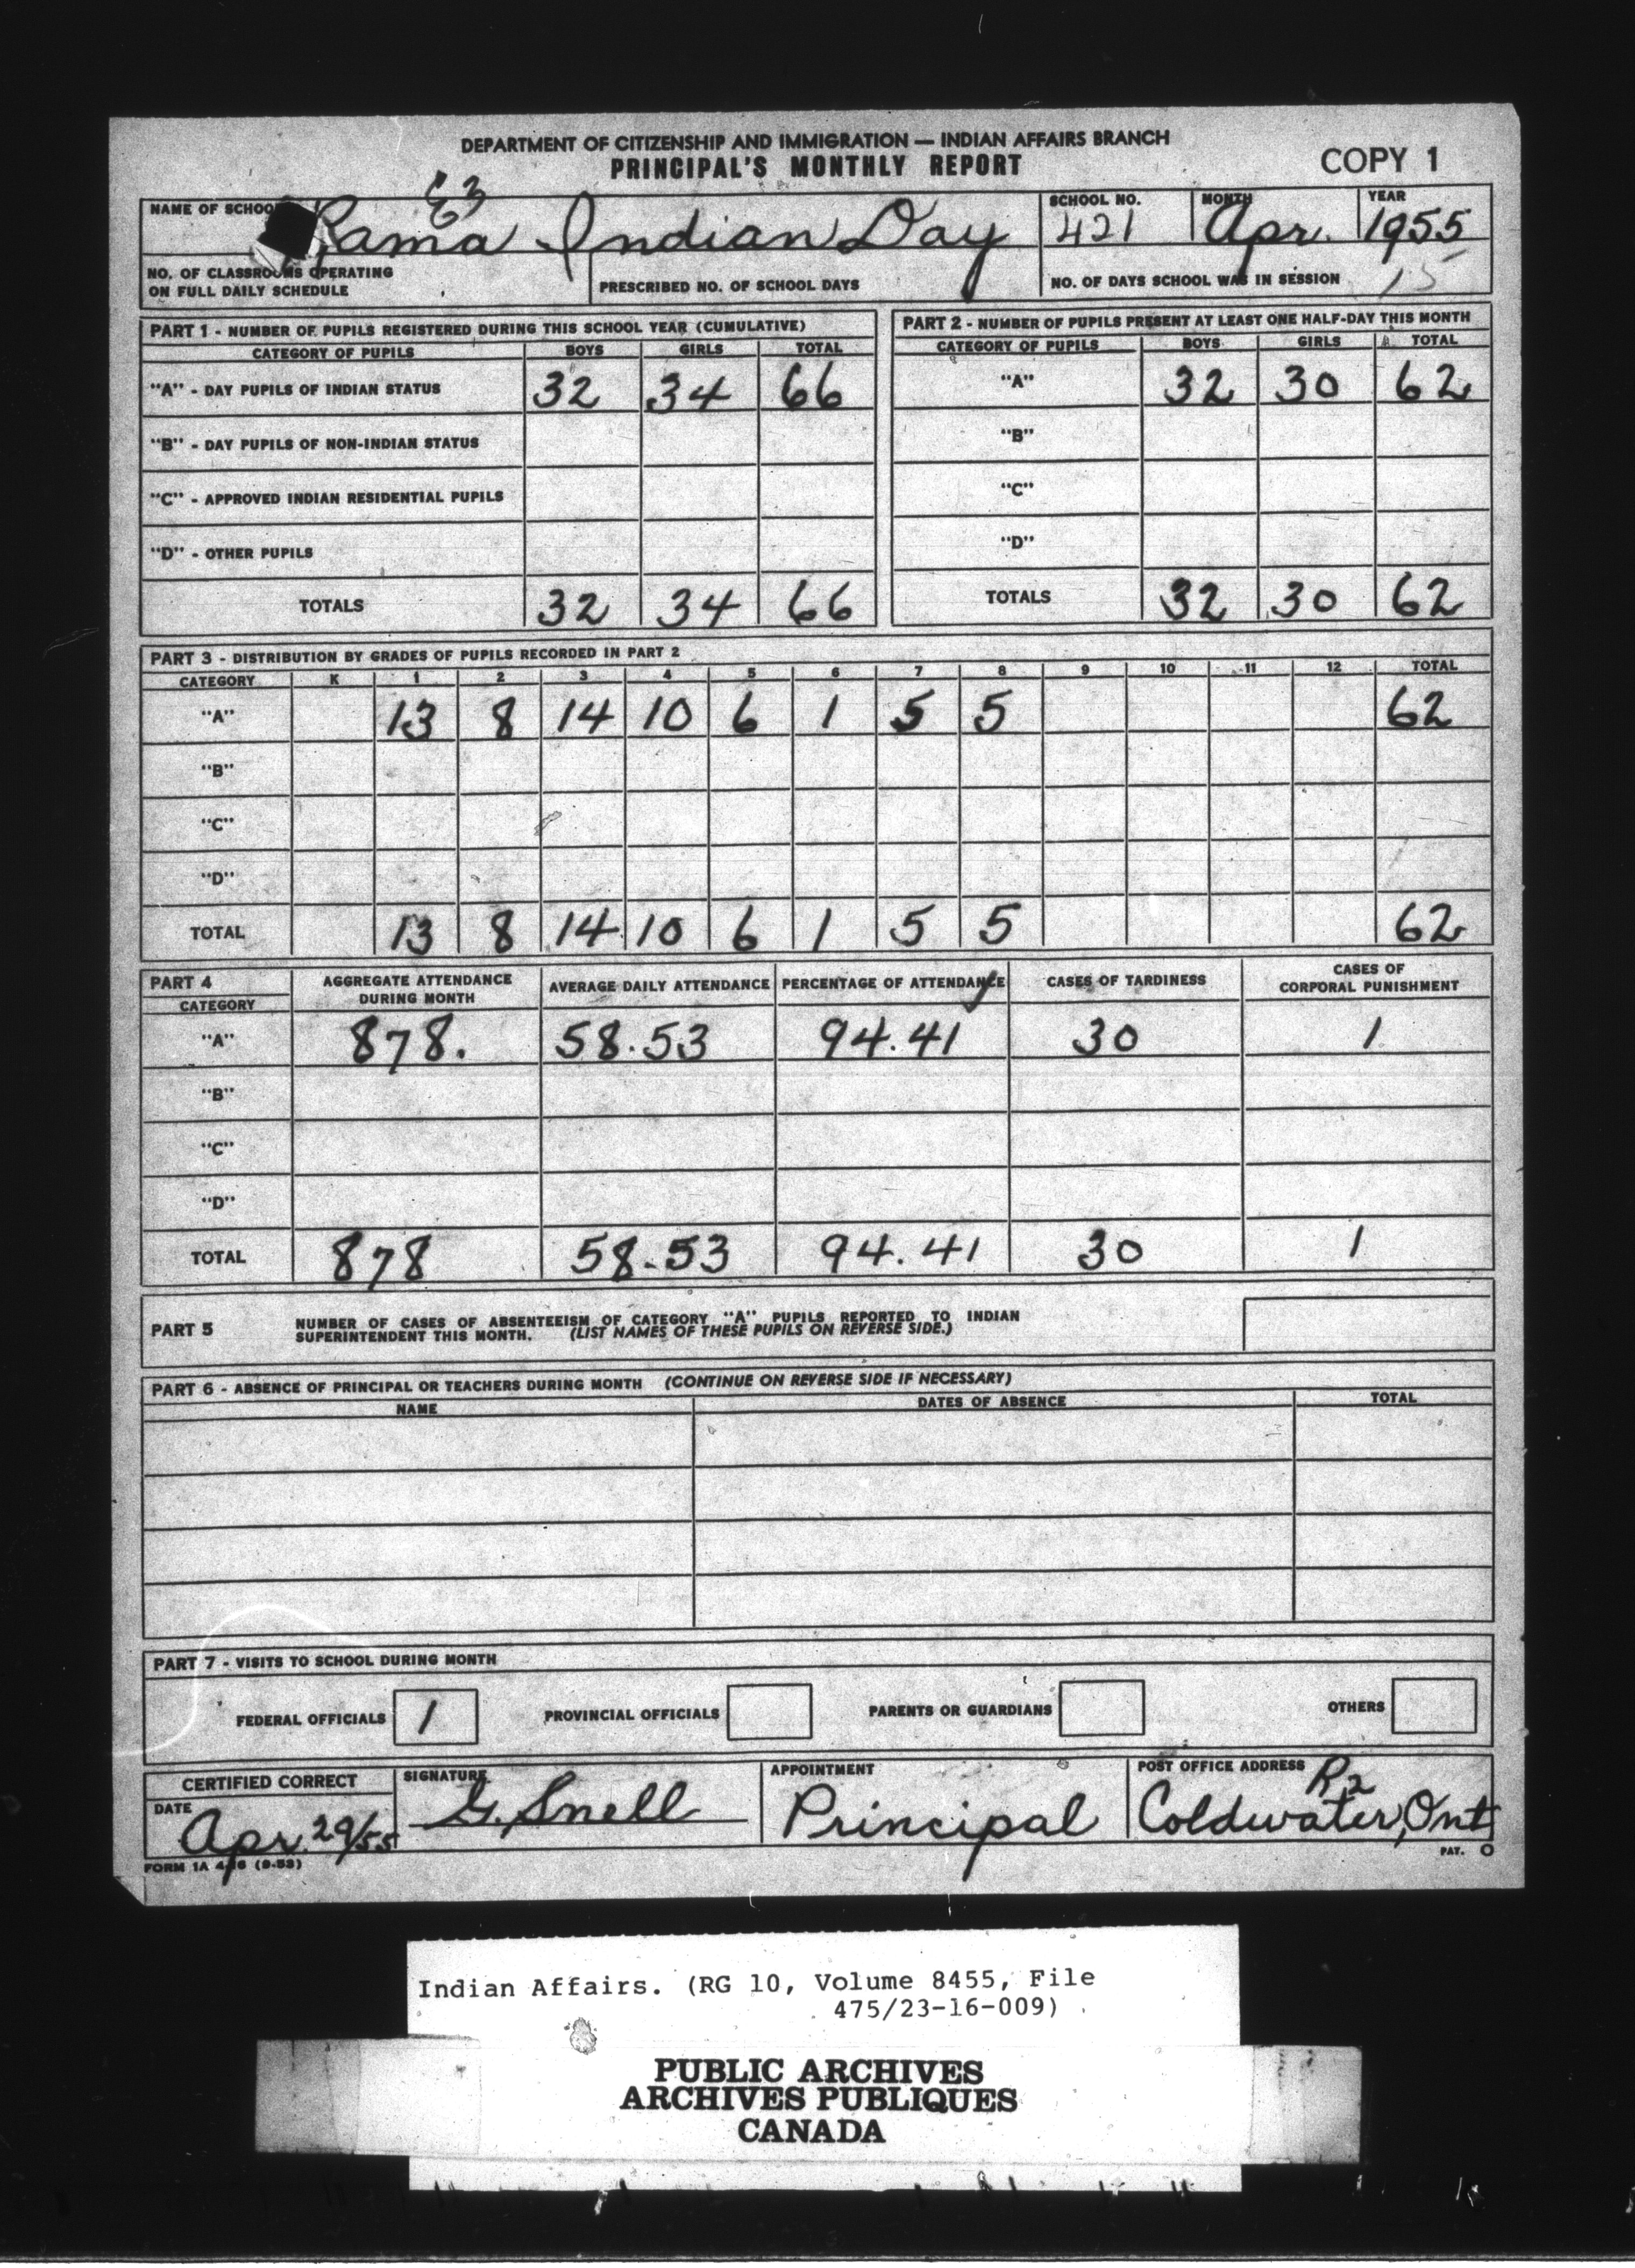 DEPARTMENT OF CITIZENSHIP AND IMMIGRATION — INDIAN AFFAIRS BRANCH
PRINCIPAL'S MONTHLY REPORT
COPY 1
NAME OF SCHOOL Rama Indian Day SCHOOL NO. 421 MONTH Apr. YEAR 1955
NO. OF CLASSROOMS OPERATING ON FULL DAILY SCHEDULE PRESCRIBED NO. OF SCHOOL DAYS NO. OF DAYS SCHOOL WAS IN SESSION 15
PART 1 - NUMBER OF PUPILS REGISTERED DURING THIS SCHOOL YEAR (CUMULATIVE)
CATEGORY OF PUPILS BOYS GIRLS TOTAL
"A" - DAY PUPILS OF INDIAN STATUS 32 34 66
"B" - DAY PUPILS OF NON-INDIAN STATUS
"C" - APPROVED INDIAN RESIDENTIAL PUPILS
"D" - OTHER PUPILS
TOTALS 32 34 66
PART 2 - NUMBER OF PUPILS PRESENT AT LEAST ONE HALF-DAY THIS MONTH
CATEGORY OF PUPILS BOYS GIRLS TOTAL
"A" 32 30 62
"B"
"C"
"D"
TOTALS 32 30 62
PART 3 - DISTRIBUTION BY GRADES OF PUPILS RECORDED IN PART 2
CATEGORY K 1 2 3 4 5 6 7 8 9 10 11 12 TOTAL
"A" 13 8 14 10 6 1 5 5 62
"B"
"C"
"D"
TOTAL 13 8 14 10 6 1 5 5 62
PART 4
CATEGORY AGGREGATE ATTENDANCE DURING MONTH AVERAGE DAILY ATTENDANCE PERCENTAGE OF ATTENDANCE CASES OF TARDINESS CASES OF CORPORAL PUNISHMENT
"A" 878. 58.53 94.41 30 1
"B"
"C"
"D"
TOTAL 878 58.53 94.41 30 1
PART 5 NUMBER OF CASES OF ABSENTEEISM OF CATEGORY "A" PUPILS REPORTED TO INDIAN
SUPERINTENDENT THIS MONTH. (LIST NAMES OF THESE PUPILS ON REVERSE SIDE.)
PART 6 - ABSENCE OF PRINCIPAL OR TEACHERS DURING MONTH (CONTINUE ON REVERSE SIDE IF NECESSARY)
NAME DATES OF ABSENCE TOTAL
PART 7 - VISITS TO SCHOOL DURING MONTH
FEDERAL OFFICIALS 1 PROVINCIAL OFFICIALS PARENTS OR GUARDIANS OTHERS
CERTIFIED CORRECT
DATE Apr. 29/55
SIGNATURE G. Snell
APPOINTMENT Principal
POST OFFICE ADDRESS R2
Coldwater, Ont
PAT. O
Indian Affairs. (RG 10, Volume 8455, File
475/23-16-009)
PUBLIC ARCHIVES
ARCHIVES PUBLIQUES
CANADA